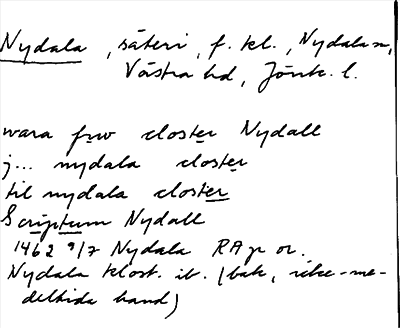 Nydala, säteri, f. kl., Nydala sn,
Västra hd, Jönk. l.
wara frw closter Nydall
j... nydala closter
til nydala closter
Scriptum Nydall
1462 9/7 Nydala RAp or.
Nydala klost. ib. (bak, icke-me-
deltida hand)